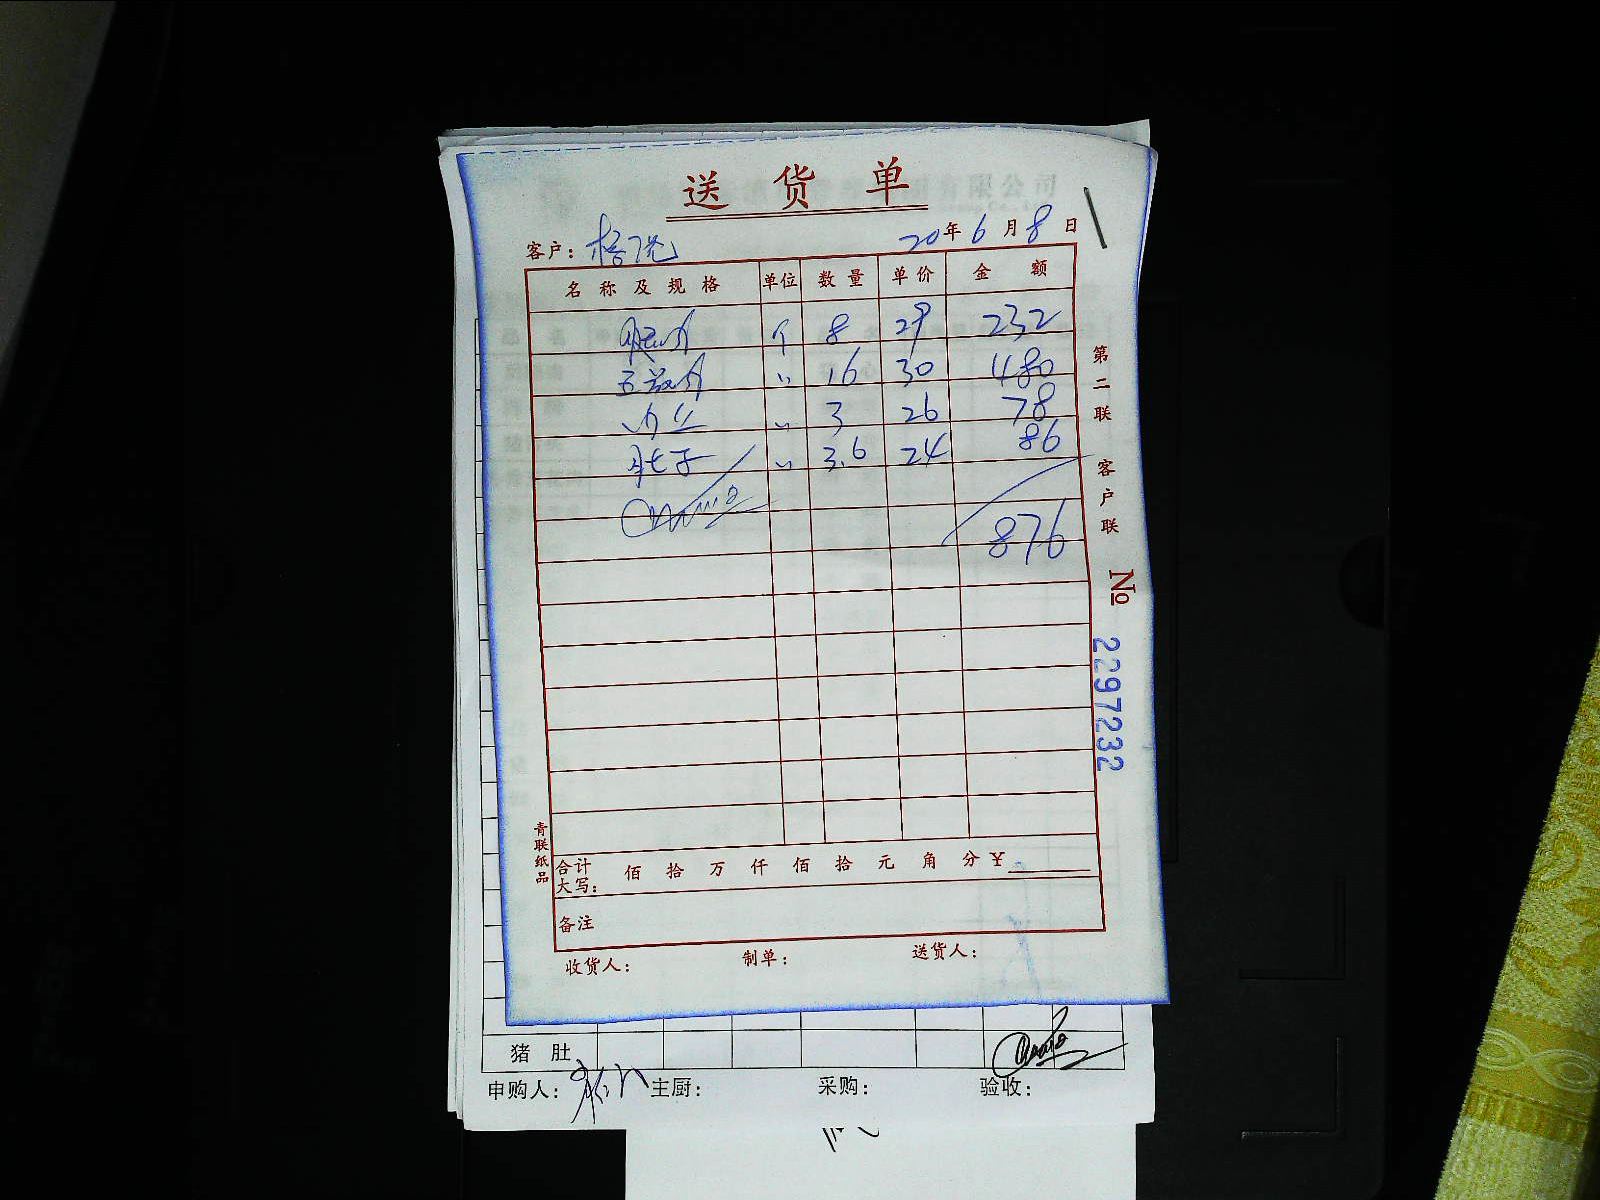 送货单
客户： 20年6月8日
名称及规格 单位 数量 单价 金额
腿肉 个 8 29 232
五花肉 〃 16 30 480
小业 〃 3 26 78
肚子 〃 3.6 24 86
876
第二联 客户联
№ 2297232
青联纸品
合计大写： 佰 拾 万 仟 佰 拾 元 角 分 ¥
备注
收货人： 制单： 送货人：
猪肚
申购人： 主厨： 采购： 验收：